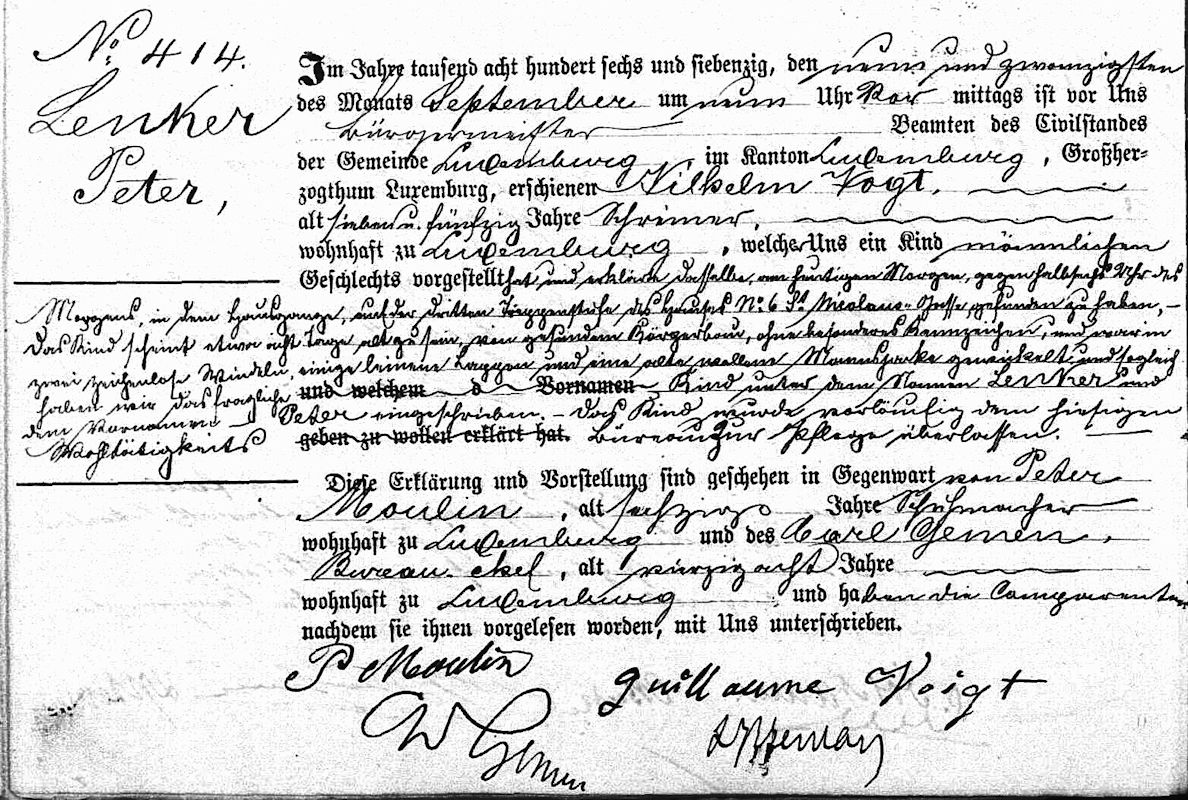 No. 414.
Lenker
Peter,
Im Jahre tausend acht hundert sechs und siebenzig, den neun und zwanzigsten
des Monats September um neun Uhr Vor mittags ist vor Uns
Bürgermeister Beamten des Civilstandes
der Gemeinde Luxemburg im Kanton Luxemburg, Großher-
zogthum Luxemburg, erschienen Wilhelm Vogt,
alt sieben u. fünfzig Jahre Schreiner,
wohnhaft zu Luxemburg, welcher Uns ein Kind männlichen
Geschlechts vorgestellt hat, und erklärte dasselbe, am heutigen Morgen, gegen halb sechs Uhr des
Morgens, in dem Hausgange, auf der dritten Treppenstufe des Hauses No. 6 St. Nicolaus-Gasse gefunden zu haben, –
das Kind scheint etwa acht Tage alt zu sein, von gesundem Körperbau, ohne besonderes Kennzeichen, und war in
zwei zeichenlose Windeln, einige leinene Lappen und eine alte wollene Mannsjacke gewickelt und sogleich
haben wir das fragliche und welchem d Vornamen Kind unter dem Namen Lenker und
dem Vornamen – Peter eingeschrieben. – Das Kind wurde vorläufig dem hiesigen
Wohltätigkeits geben zu wollen erklärt hat. Büreau zur Pflege überlassen. –
Diese Erklärung und Vorstellung sind geschehen in Gegenwart von Peter
Moulin, alt sechzig Jahre Schuhmacher
wohnhaft zu Luxemburg und des Carl Gemen,
Bureau-chef, alt vierzig acht Jahre
wohnhaft zu Luxemburg und haben die Comparenten
nachdem sie ihnen vorgelesen worden, mit Uns unterschrieben.
P Moulin
Guillaume Voigt
Gemen